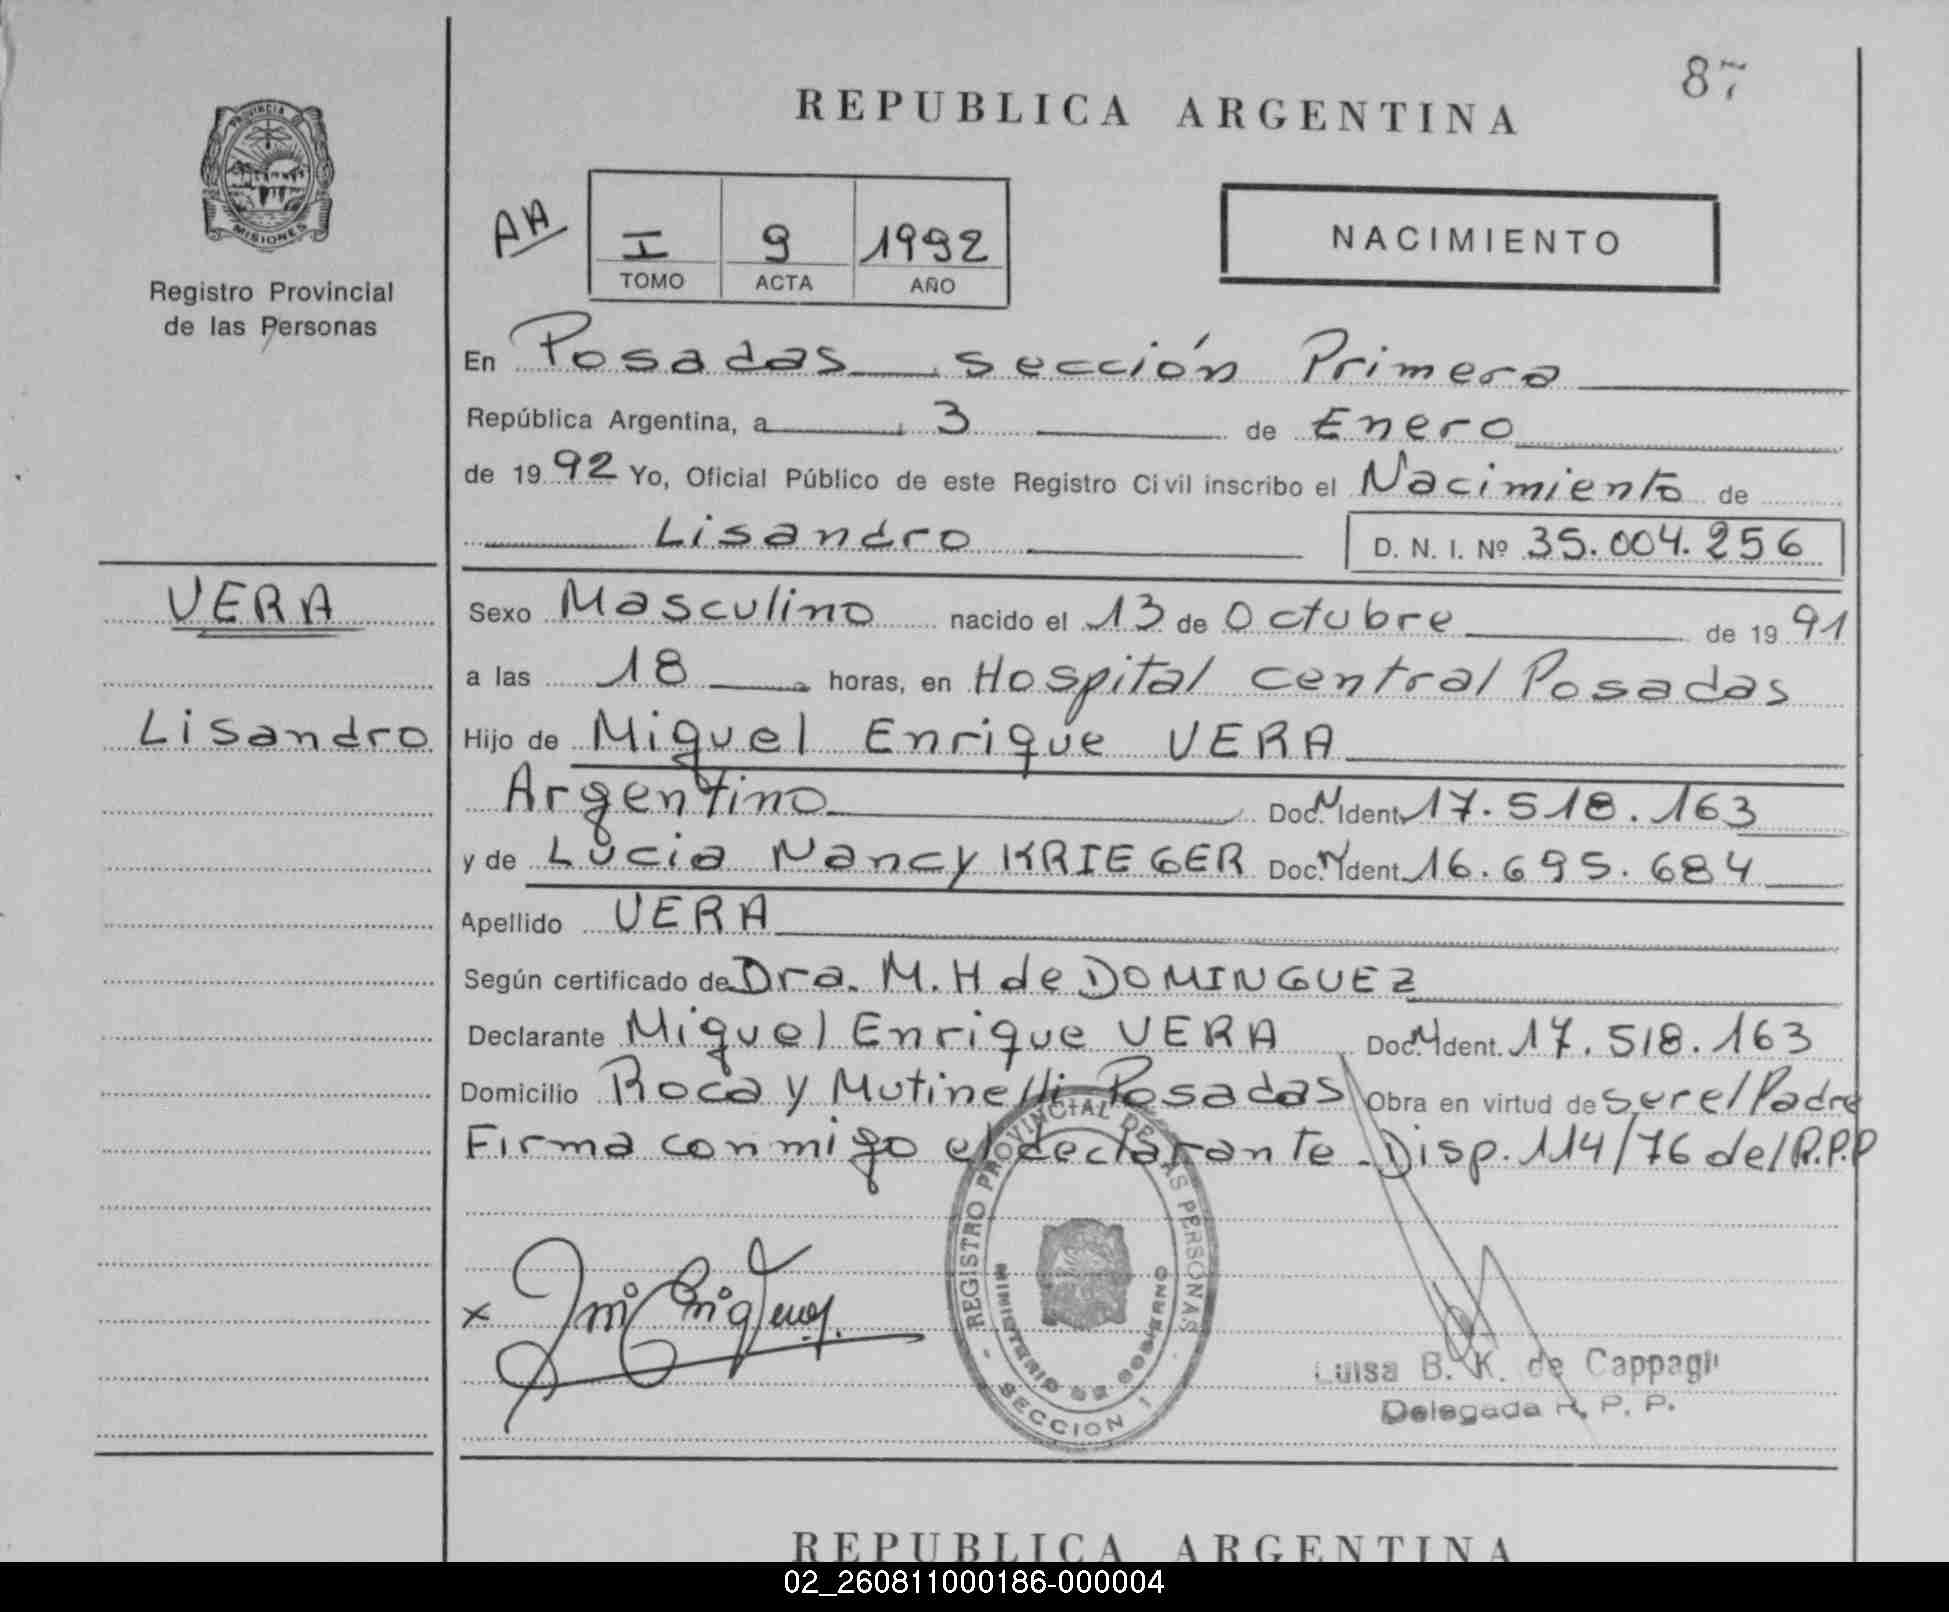 87
REPUBLICA ARGENTINA
PROVINCIA DE
MISIONES
Registro Provincial
de las Personas
AA
I 9 1992
TOMO ACTA AÑO
NACIMIENTO
En Posadas sección Primera
República Argentina, a 3 de Enero
de 1992 Yo, Oficial Público de este Registro Civil inscribo el Nacimiento de
Lisandro D. N. I. Nº 35.004.256
VERA
Lisandro
Sexo Masculino nacido el 13 de Octubre de 1991
a las 18 horas, en Hospital central Posadas
Hijo de Miguel Enrique VERA
Argentino Doc. N Ident. 17.518.163
y de Lucia Nancy KRIEGER Doc. N Ident. 16.695.684
Apellido VERA
Según certificado de Dra. M. H de DOMINGUEZ
Declarante Miguel Enrique VERA Doc. N Ident. 17.518.163
Domicilio Roca y Mutinelli Posadas Obra en virtud de ser el Padre
Firma conmigo el declarante. Disp. 114/76 del R.P.P
REGISTRO PROVINCIAL DE LAS PERSONAS
MINISTERIO DE GOBIERNO
SECCION 1
x
Luisa B. K. de Cappagli
Delegada R. P. P.
REPUBLICA ARGENTINA
02_260811000186-000004